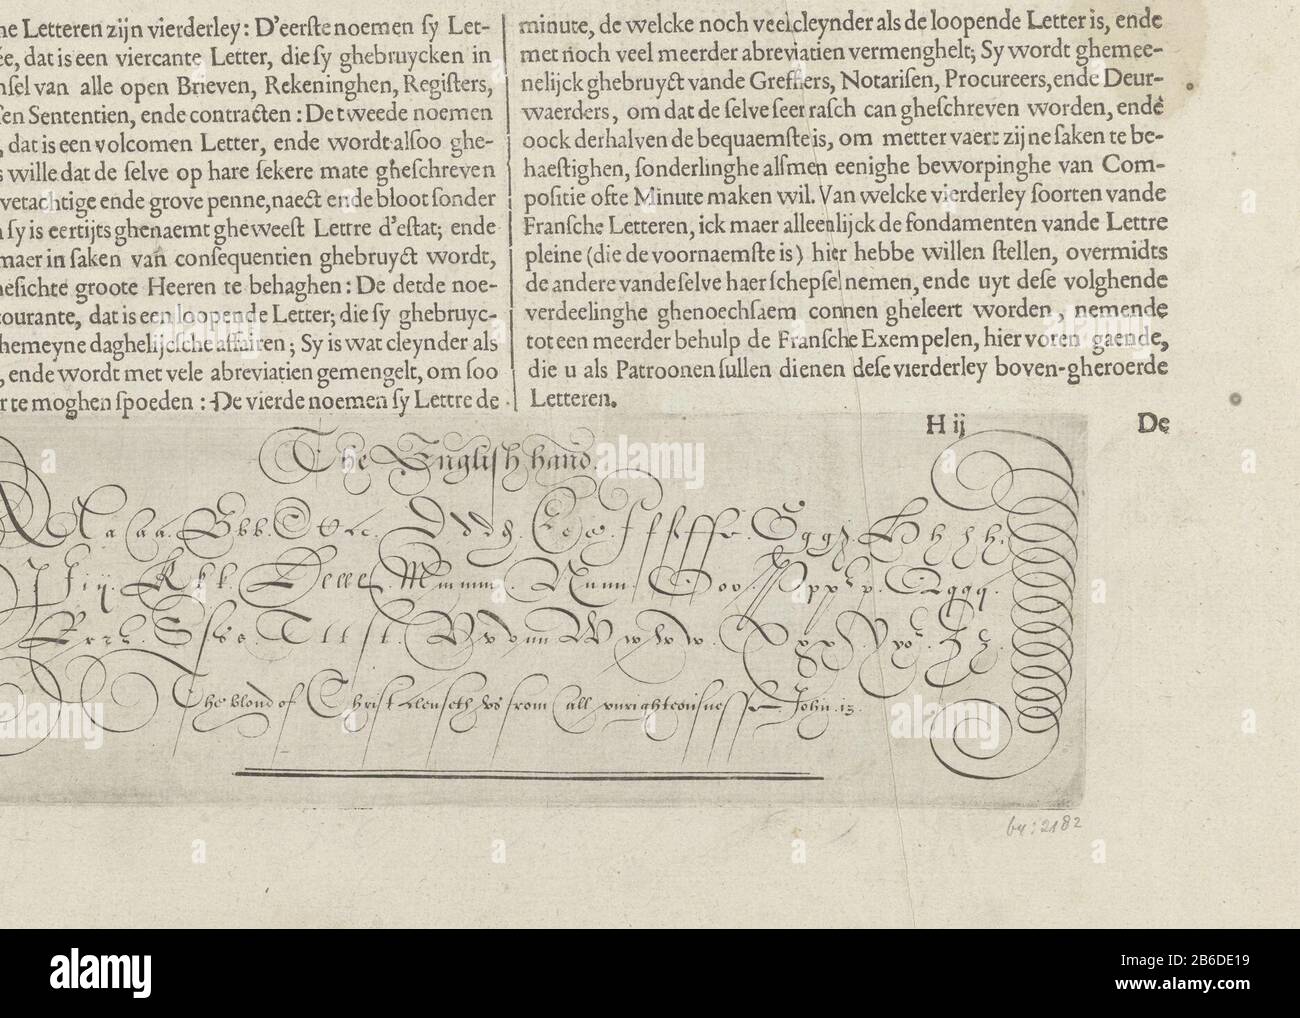 ne Letteren zijn vierderley: D'eerste noemen sy Let-
ée, dat is een viercante Letter, die sy ghebruycken in
nsel van alle open Brieven, Rekeninghen, Registers,
en Sententien, ende contracten: De tweede noemen
, dat is een volcomen Letter, ende wordt alsoo ghe-
s wille dat de selve op hare sekere mate gheschreven
vetachtige ende grove penne, naect ende bloot sonder
sy is eertijts ghenaemt gheweest Lettre d'estat; ende
maer in saken van consequentien ghebruyct wordt,
nesichte groote Heeren te behaghen: De derde noe-
courante, dat is een loopende Letter; die sy ghebruyc-
hemeyne daghelijcsche affairen; Sy is wat cleynder als
, ende wordt met vele abreviatien gemengelt, om soo
r te moghen spoeden: De vierde noemen sy Lettre de
minute, de welcke noch veel cleynder als de loopende Letter is, ende
met noch veel meerder abreviatien vermenghelt; Sy wordt ghemee-
nelijck ghebruyct vande Greffiers, Notarisen, Procureers, ende Deur-
waerders, om dat de selve seer rasch can gheschreven worden, ende
oock derhalven de bequaemste is, om metter vaert zijne saken te be-
haestighen, sonderlinghe alsmen eenighe beworpinghe van Com-
positie ofte Minute maken wil. Van welcke vierderley soorten vande
Fransche Letteren, ick maer alleenlijck de fondamenten vande Lettre
pleine (die de voornaemste is) hier hebbe willen stellen, overmidts
de andere vande selve haer schepsel nemen, ende uyt dese volghende
verdeelinghe ghenoechsaem connen gheleert worden, nemende
tot een meerder behulp de Fransche Exempelen, hier voren gaende,
die u als Patroonen sullen dienen dese vierderley boven-gheroerde
Letteren.
H ij De
The English hand.
The blood of Christ clenseth us from all unrighteousnesse. John. 13.
by: 2182
alamy
Image ID: 2B6DE19
www.alamy.com